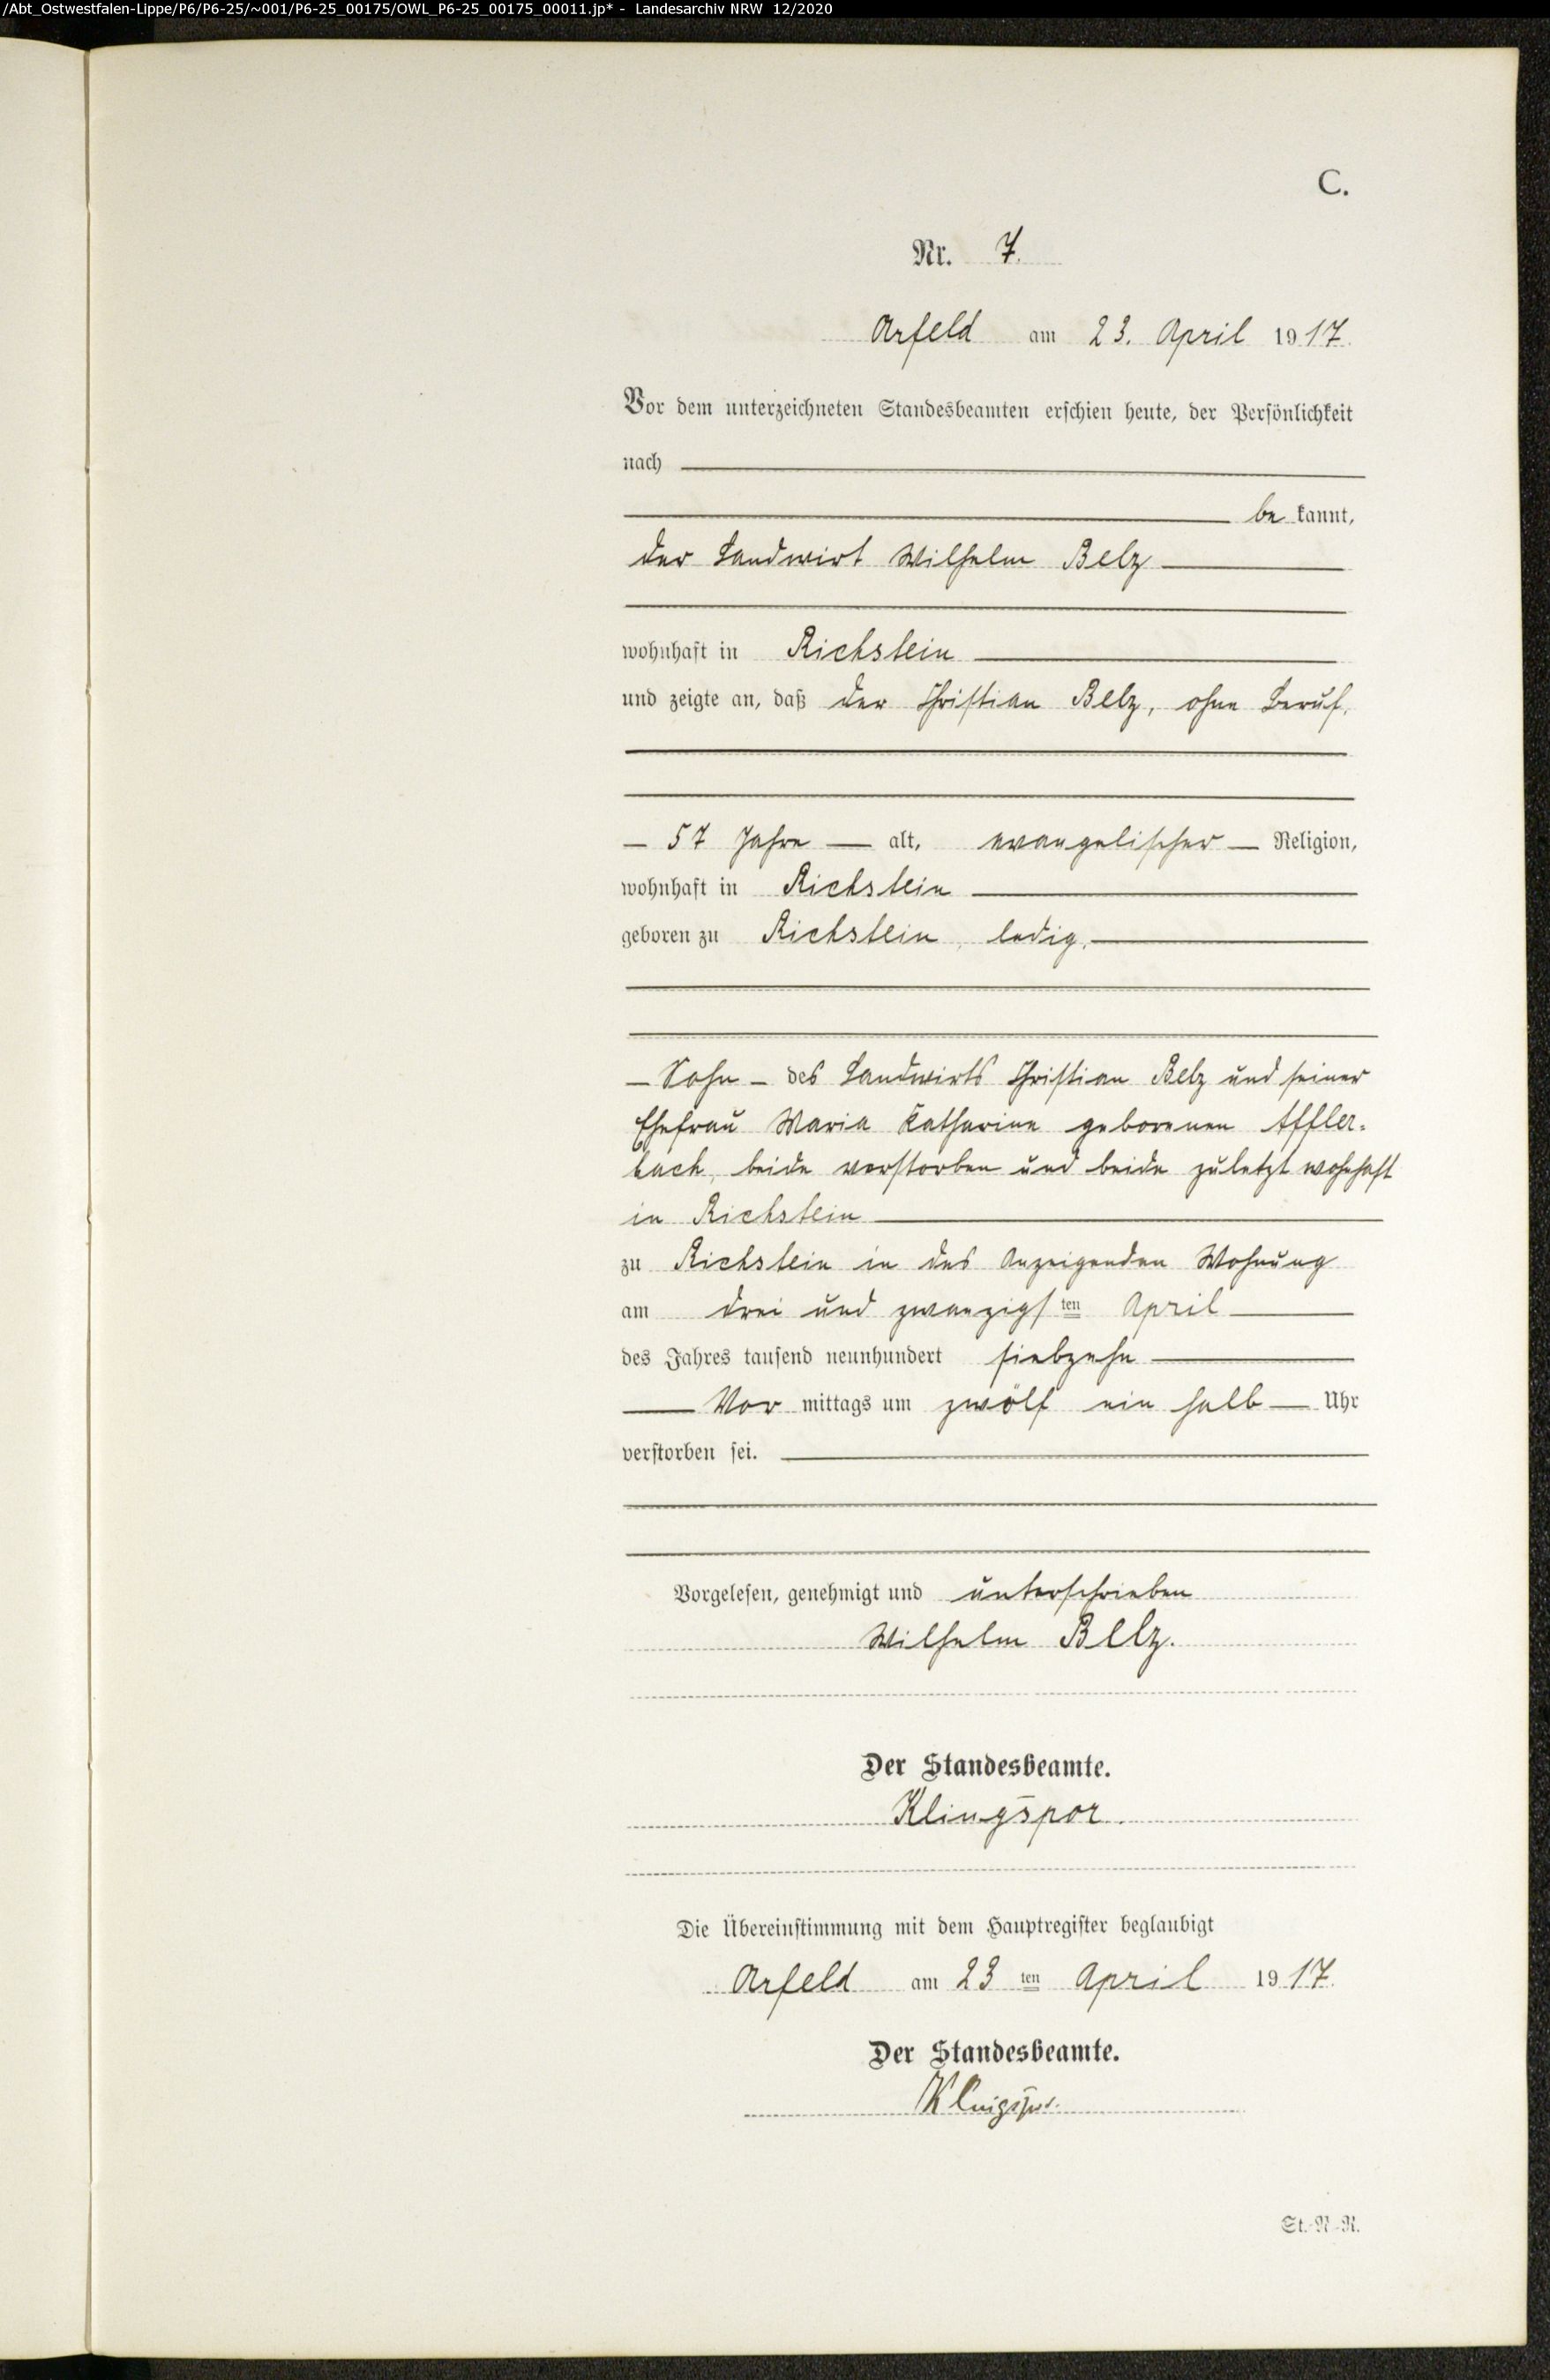 /Abt_Ostwestfalen-Lippe/P6/P6-25/~001/P6-25_00175/OWL_P6-25_00175_00011.jp* - Landesarchiv NRW 12/2020
C.
Nr. 7.
Arfeld am 23. April 1917.
Vor dem unterzeichneten Standesbeamten erschien heute, der Persönlichkeit
nach
be kannt,
der Landwirt Wilhelm Belz
wohnhaft in Richstein
und zeigte an, daß der Christian Belz, ohne Beruf,
— 57 Jahre — alt, evangelischer — Religion,
wohnhaft in Richstein
geboren zu Richstein, ledig,
— Sohn — des Landwirts Christian Belz und seiner
Ehefrau Maria Katharina geborenen Affler-
bach, beide verstorben und beide zuletzt wohnhaft
in Richstein
zu Richstein in des Anzeigenden Wohnung
am drei und zwanzigsten April
des Jahres tausend neunhundert siebzehn
— Vor mittags um zwölf ein halb — Uhr
verstorben sei.
Vorgelesen, genehmigt und unterschrieben
Wilhelm Belz.
Der Standesbeamte.
Klingspor.
Die Übereinstimmung mit dem Hauptregister beglaubigt
Arfeld am 23 ten April 1917.
Der Standesbeamte.
Klingspor.
St.-N.-R.